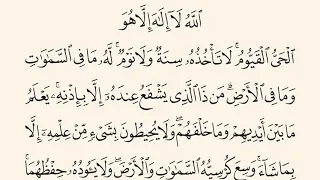 اللَّهُ لَا إِلَٰهَ إِلَّا هُوَ
الْحَيُّ الْقَيُّومُ ۚ لَا تَأْخُذُهُ سِنَةٌ وَلَا نَوْمٌ ۚ لَّهُ مَا فِي السَّمَاوَاتِ
وَمَا فِي الْأَرْضِ ۗ مَن ذَا الَّذِي يَشْفَعُ عِندَهُ إِلَّا بِإِذْنِهِ ۚ يَعْلَمُ
مَا بَيْنَ أَيْدِيهِمْ وَمَا خَلْفَهُمْ ۖ وَلَا يُحِيطُونَ بِشَيْءٍ مِّنْ عِلْمِهِ إِلَّا
بِمَا شَاءَ ۚ وَسِعَ كُرْسِيُّهُ السَّمَاوَاتِ وَالْأَرْضَ ۖ وَلَا يَئُودُهُ حِفْظُهُمَا ۚ